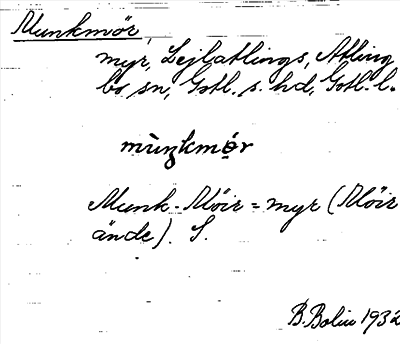 Munkmör,
myr, Lejlatlings, Atling
bo sn, Gotl. s. hd, Gotl. l.
mùŋkmǫ́r
Munk-Möir = myr (Möir
ände). S.
B. Bolin 1932